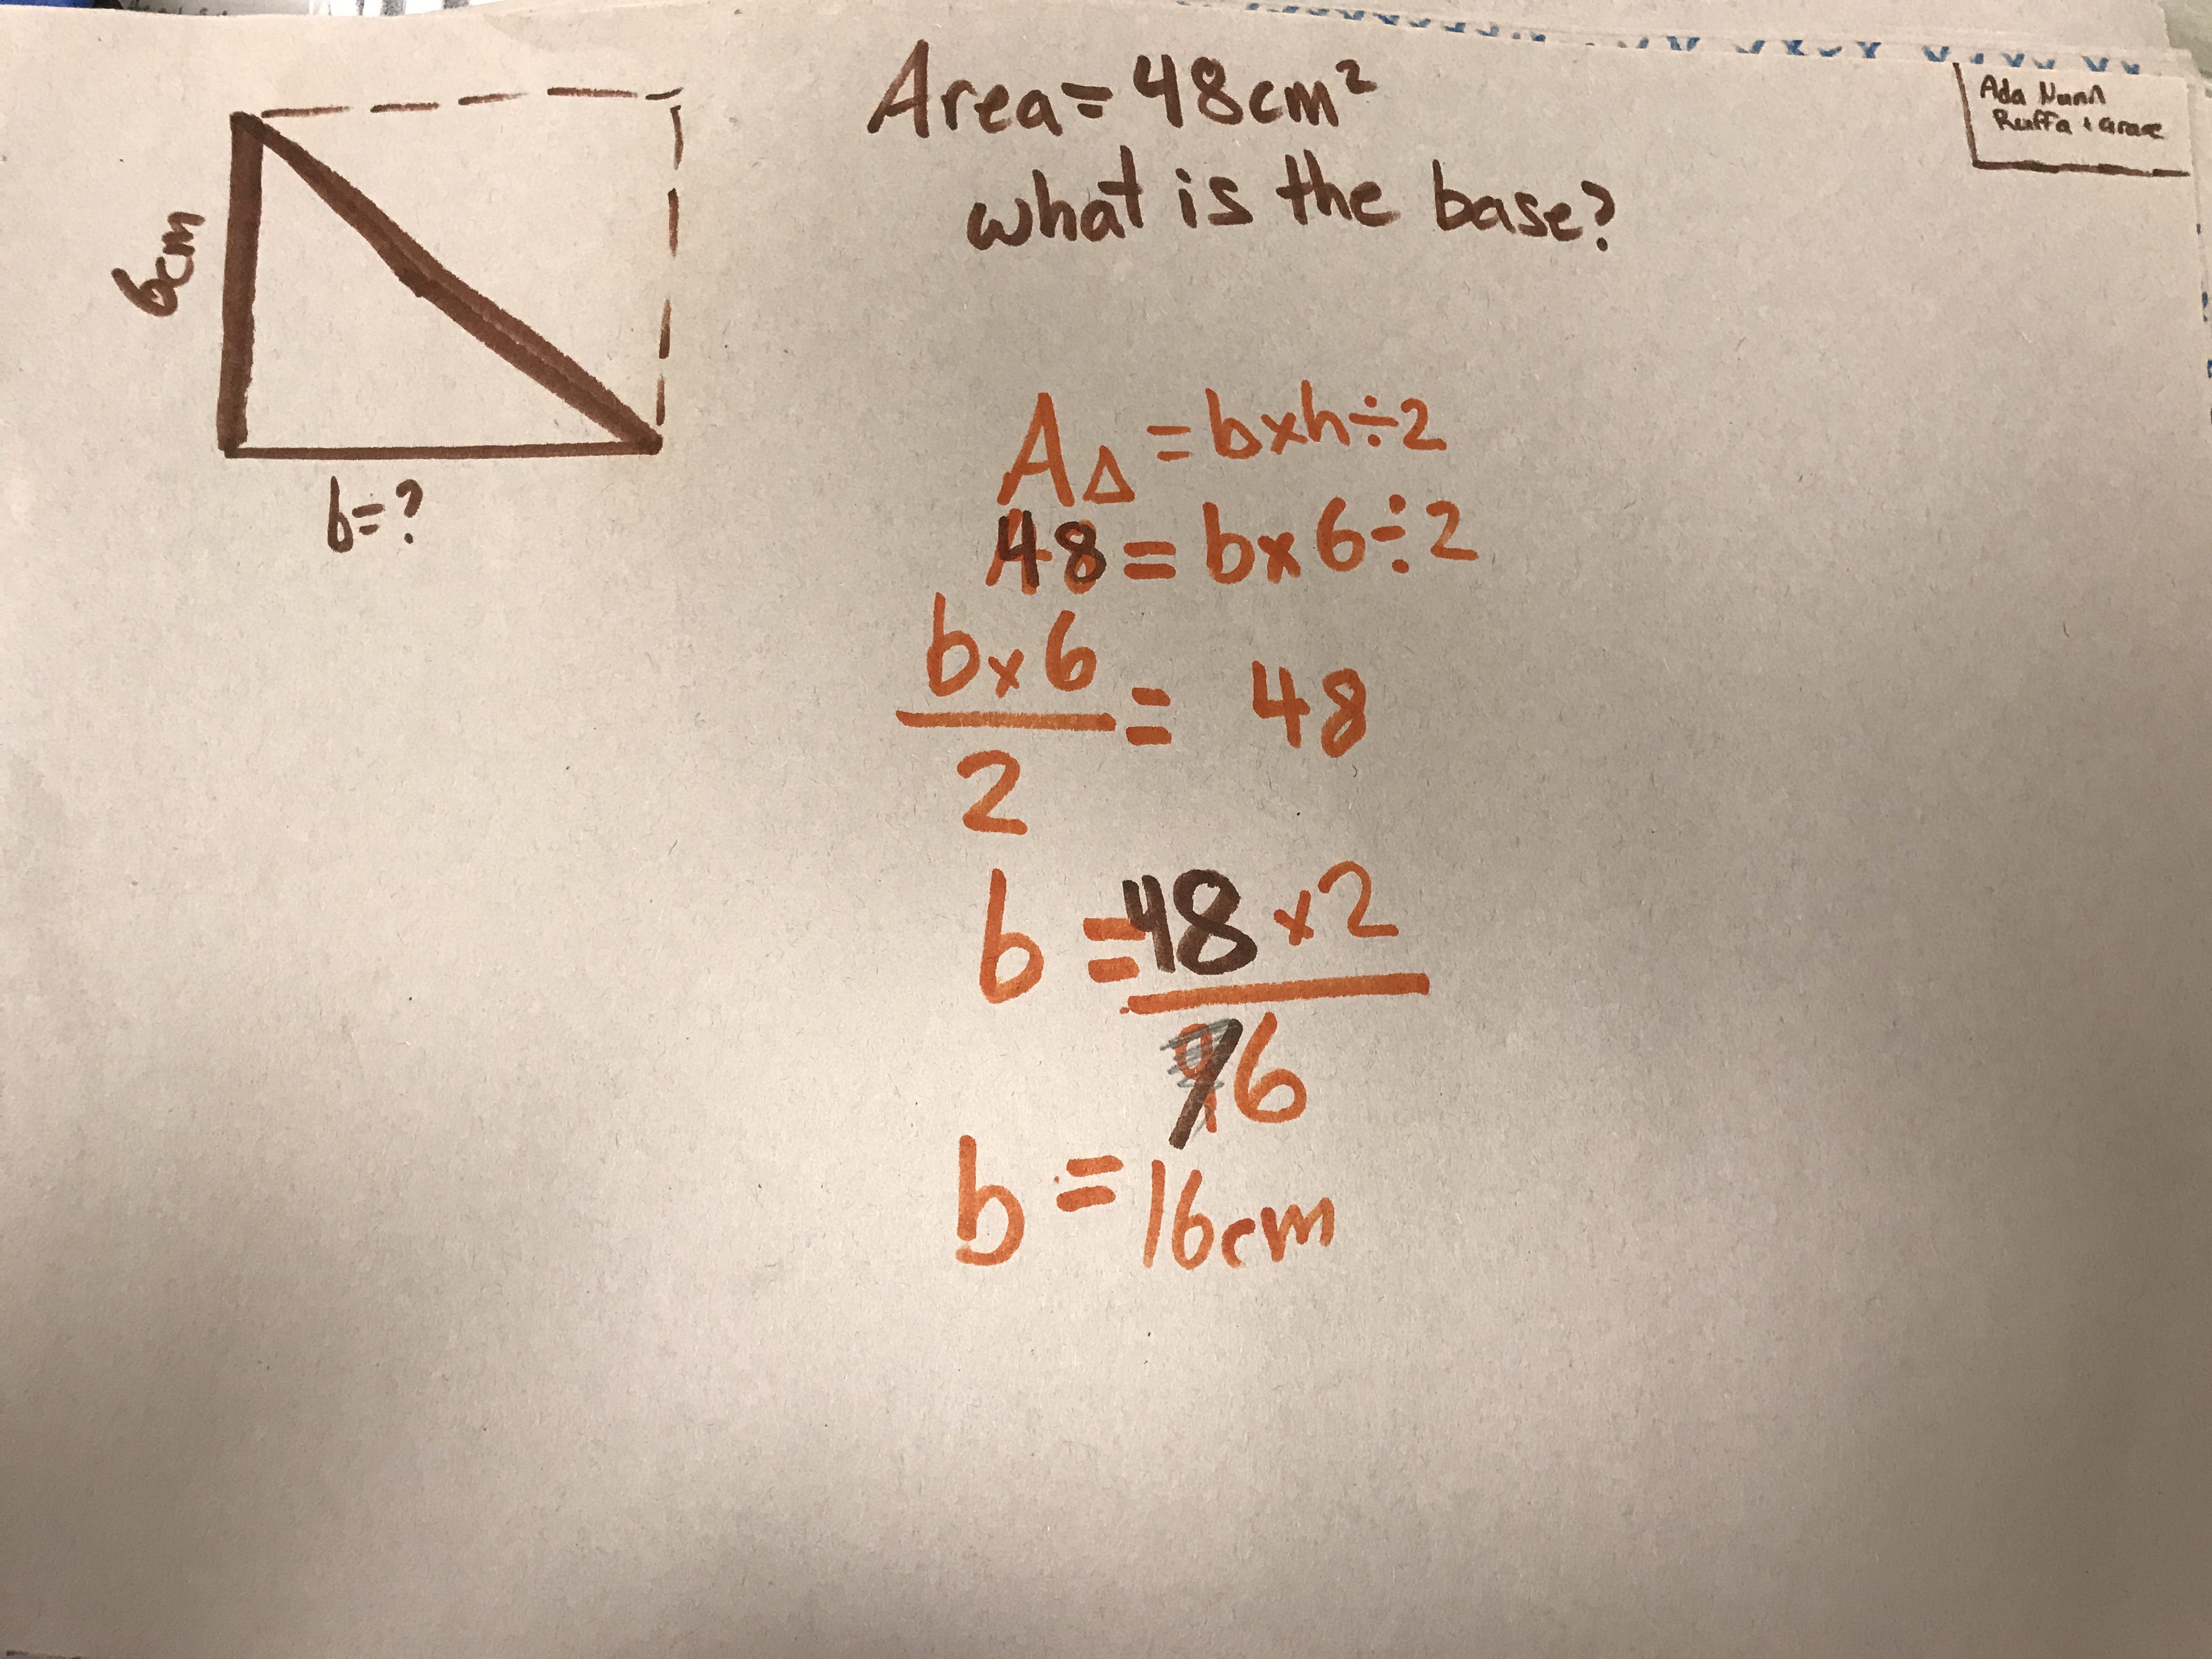 Area = 48cm²
what is the base?
Ada
Ruffa + Grace
6cm
b=?
A△ = b×h÷2
48 = b×6÷2
b×6
2
= 48
b = 48 ×2
6
b = 16cm